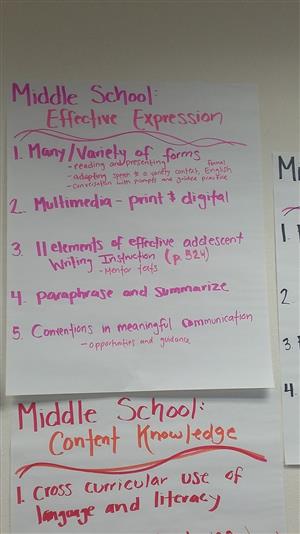 Middle School:
Effective Expression
1. Many/Variety of forms
- reading and presenting
- adapting speech to a variety context, Formal English
- conversation with prompts and guided practice
2. Multimedia - print & digital
3. 11 elements of effective adolescent
Writing Instruction (p. 524)
- Mentor texts
4. Paraphrase and Summarize
5. Conventions in meaningful communication
- opportunities and guidance
Middle School:
Content Knowledge
1. Cross curricular use of
language and literacy
1.
2.
3.
4.